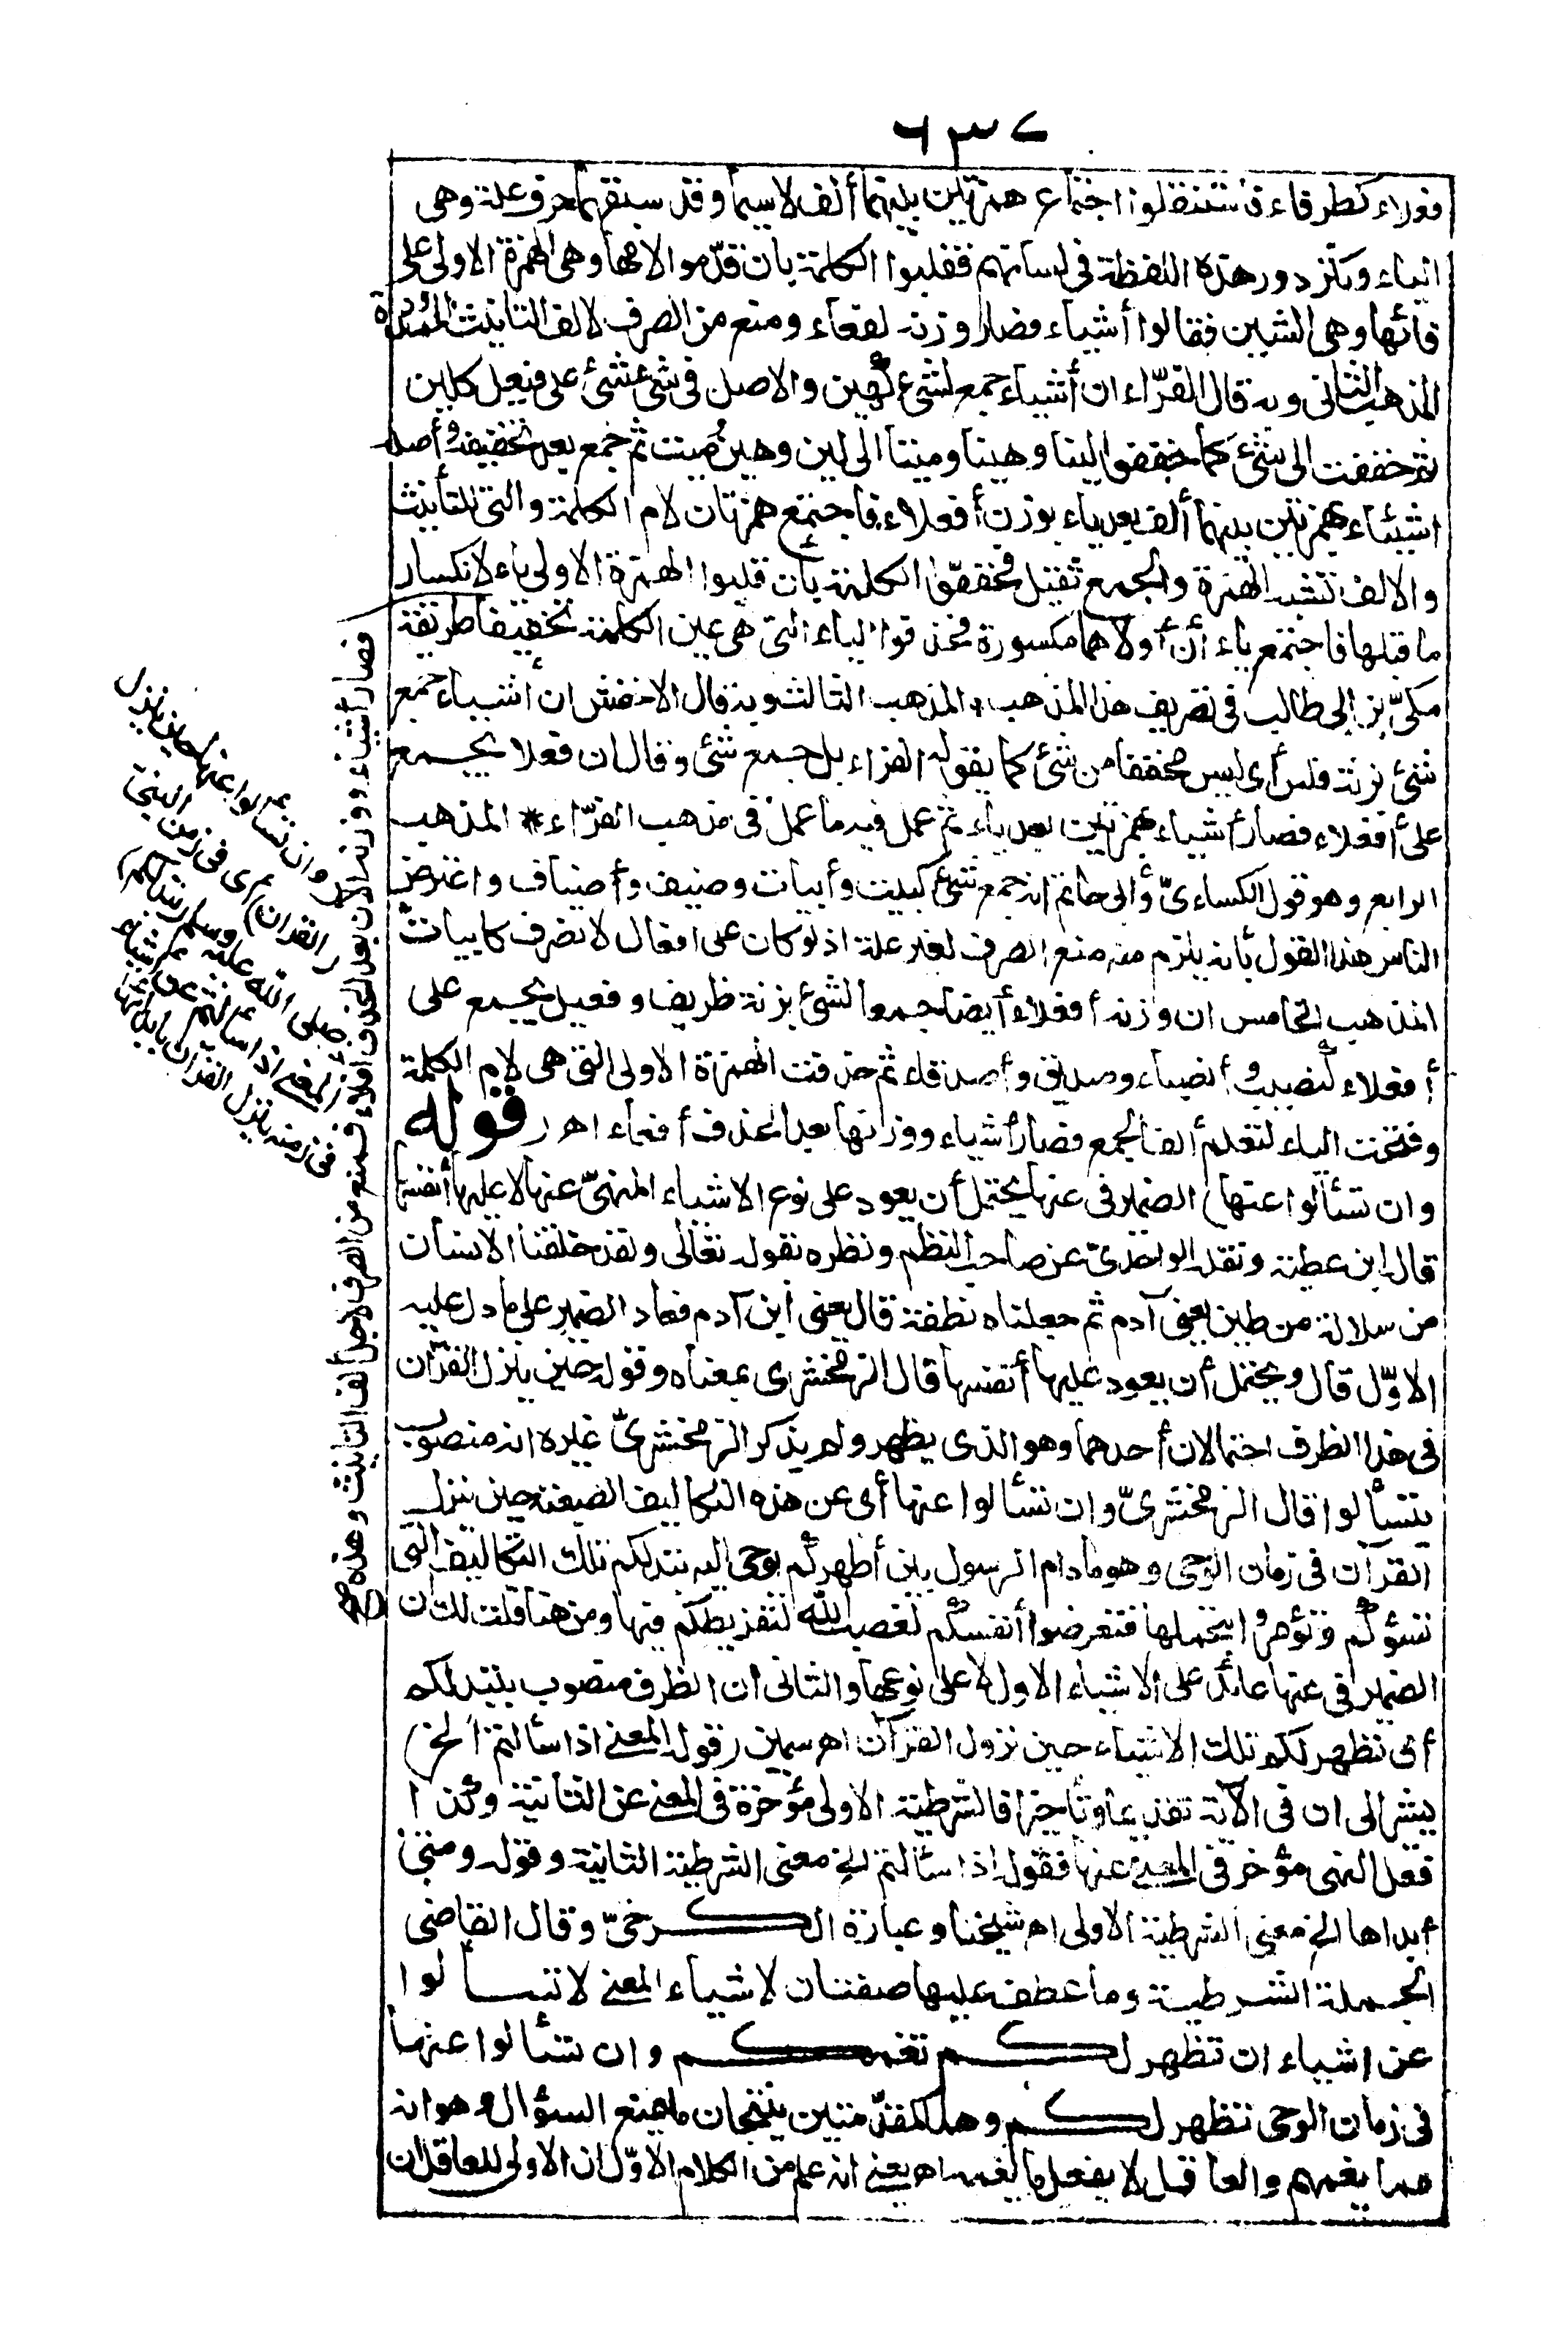 ٦٣٧
فعلاء كطرفاء فاستثقلوا اجتماع همزتين بينهما ألف لاسيما وقد سبقهما حرف علة وهي
الياء وكثر دور هذه اللفظة في لسانهم فقلبوا الكلمة بان قدّموا لامها وهي الهمزة الاولى على
فائها وهي الشين فقالوا أشياء فصار وزنه لفعاء ومنع من الصرف لالف التانيث الممدودة
المذهب الثاني وبه قال الفرّاء ان أشياء جمع لشيء كهين والاصل في شيء شيّئ على فيعل كلين
ثم خففت الى شيء كما خففوا لينا وهينا وميتا الى لين وهين وميت ثم جمع بعد تخفيفه وأصله
اشيئاء بهمزتين بينهما ألف بعد ياء بوزن أفعلاء فاجتمع همزتان لام الكلمة والتي للتأنيث
والالف تشبه الهمزة والجمع ثقيل فخففوا الكلمة بأن قلبوا الهمزة الاولى ياء لانكسار
ما قبلها فاجتمع ياءان أولاهما مكسورة فحذفوا الياء التي هي عين الكلمة تخفيفا طريقة
مكيّ بن أبي طالب في تصريف هذا المذهب * المذهب الثالث وبه قال الاخفش ان أشياء جمع
شيء بزنة فلس أي ليس مخففا من شيء كما يقوله الفراء بل جمع شيء وقال ان فعلا يجمع
على أفعلاء فصار أشياء بهمزتين بعد ياء ثم عمل فيه ما عمل في مذهب الفرّاء * المذهب
الرابع وهو قول الكساءيّ وأبي حاتم انه جمع شيء كبيت وأبيات وضيف وأضياف واعترض
الناس هذا القول بأنه يلزم منه منع الصرف لغير علة اذ لو كان على افعال لانصرف كابيات
المذهب الخامس ان وزنه أفعلاء أيضا جمعا لشيء بزنة ظريف وفعيل يجمع على
أفعلاء كنصيب وأنصباء وصديق وأصدقاء ثم حذفت الهمزة الاولى التي هي لام الكلمة
وفتحت الياء لتسلم ألف الجمع فصار أشياء ووزنها بعد الحذف أفعاء اهـ (قوله
وان تسألوا عنها) الضمير في عنها يحتمل أن يعود على نوع الاشياء المنهيّ عنها لا عليها أنفسها
قال ابن عطية ونقله الواحديّ عن صاحب النظم ونظره بقوله تعالى ولقد خلقنا الانسان
من سلالة من طين يعني آدم ثم جعلناه نطفة قال يعني ابن آدم فعاد الضمير على ما دل عليه
الاوّل قال ويحتمل أن يعود عليها أنفسها قال الزمخشري بمعناه وقوله حين ينزل القرآن
في هذا الظرف احتمالان أحدهما وهو الذي يظهر ولم يذكر الزمخشريّ غيره انه منصوب
بتسألوا قال الزمخشريّ وان تسألوا عنها أي عن هذه التكاليف الصعبة حين ينزل
القرآن في زمان الوحي وهو مادام الرسول بين أظهركم يوحي اليه تبد لكم تلك التكاليف التي
تسؤكم وتؤمروا بتحملها فتعرضوا أنفسكم لغضب الله لتفريطكم فيها ومن هنا قلت لك ان
الضمير في عنها عائد على الاشياء الاول لا على نوعها والثاني ان الظرف منصوب بتبد لكم
أي تظهر لكم تلك الاشياء حين نزول القرآن اهـ سمين (قوله المعنى اذا سألتم الخ)
يشير الى ان في الآية تقديما وتأخيرا فالشرطية الاولى مؤخرة في المعنى عن الثانية وكذا
فعل النهي مؤخر في المعنى عنها فقوله اذا سألتم الخ معنى الشرطية الثانية وقوله ومتى
أبداها الخ معنى الشرطية الاولى اهـ شيخنا وعبارة الكرخيّ وقال القاضي
الجملة الشرطية وما عطف عليها صفتان لاشياء المعنى لا تسألوا
عن اشياء ان تظهر لكم تغمكم وان تسألوا عنها
في زمان الوحي تظهر لكم وهما كمقدّمتين ينتجان ما يمنع السؤال وهو انه
مما يغمهم والعاقل لا يفعل ما يغمه اهـ يعني انه علم من الكلام الاوّل ان الاولى للعاقل ان
فصار أشياء ووزنه الآن بعد الحذف أفلاء فمنع من الصرف لاجل ألف التانيث وهذه صح
وان تسالوا عنها حين ينزل
القرآن) أي في زمن النبيّ
صلى الله عليه وسلم (تبد لكم)
المعنى اذا سألتم عن أشياء
في زمنه ينزل القرآن بابدائها